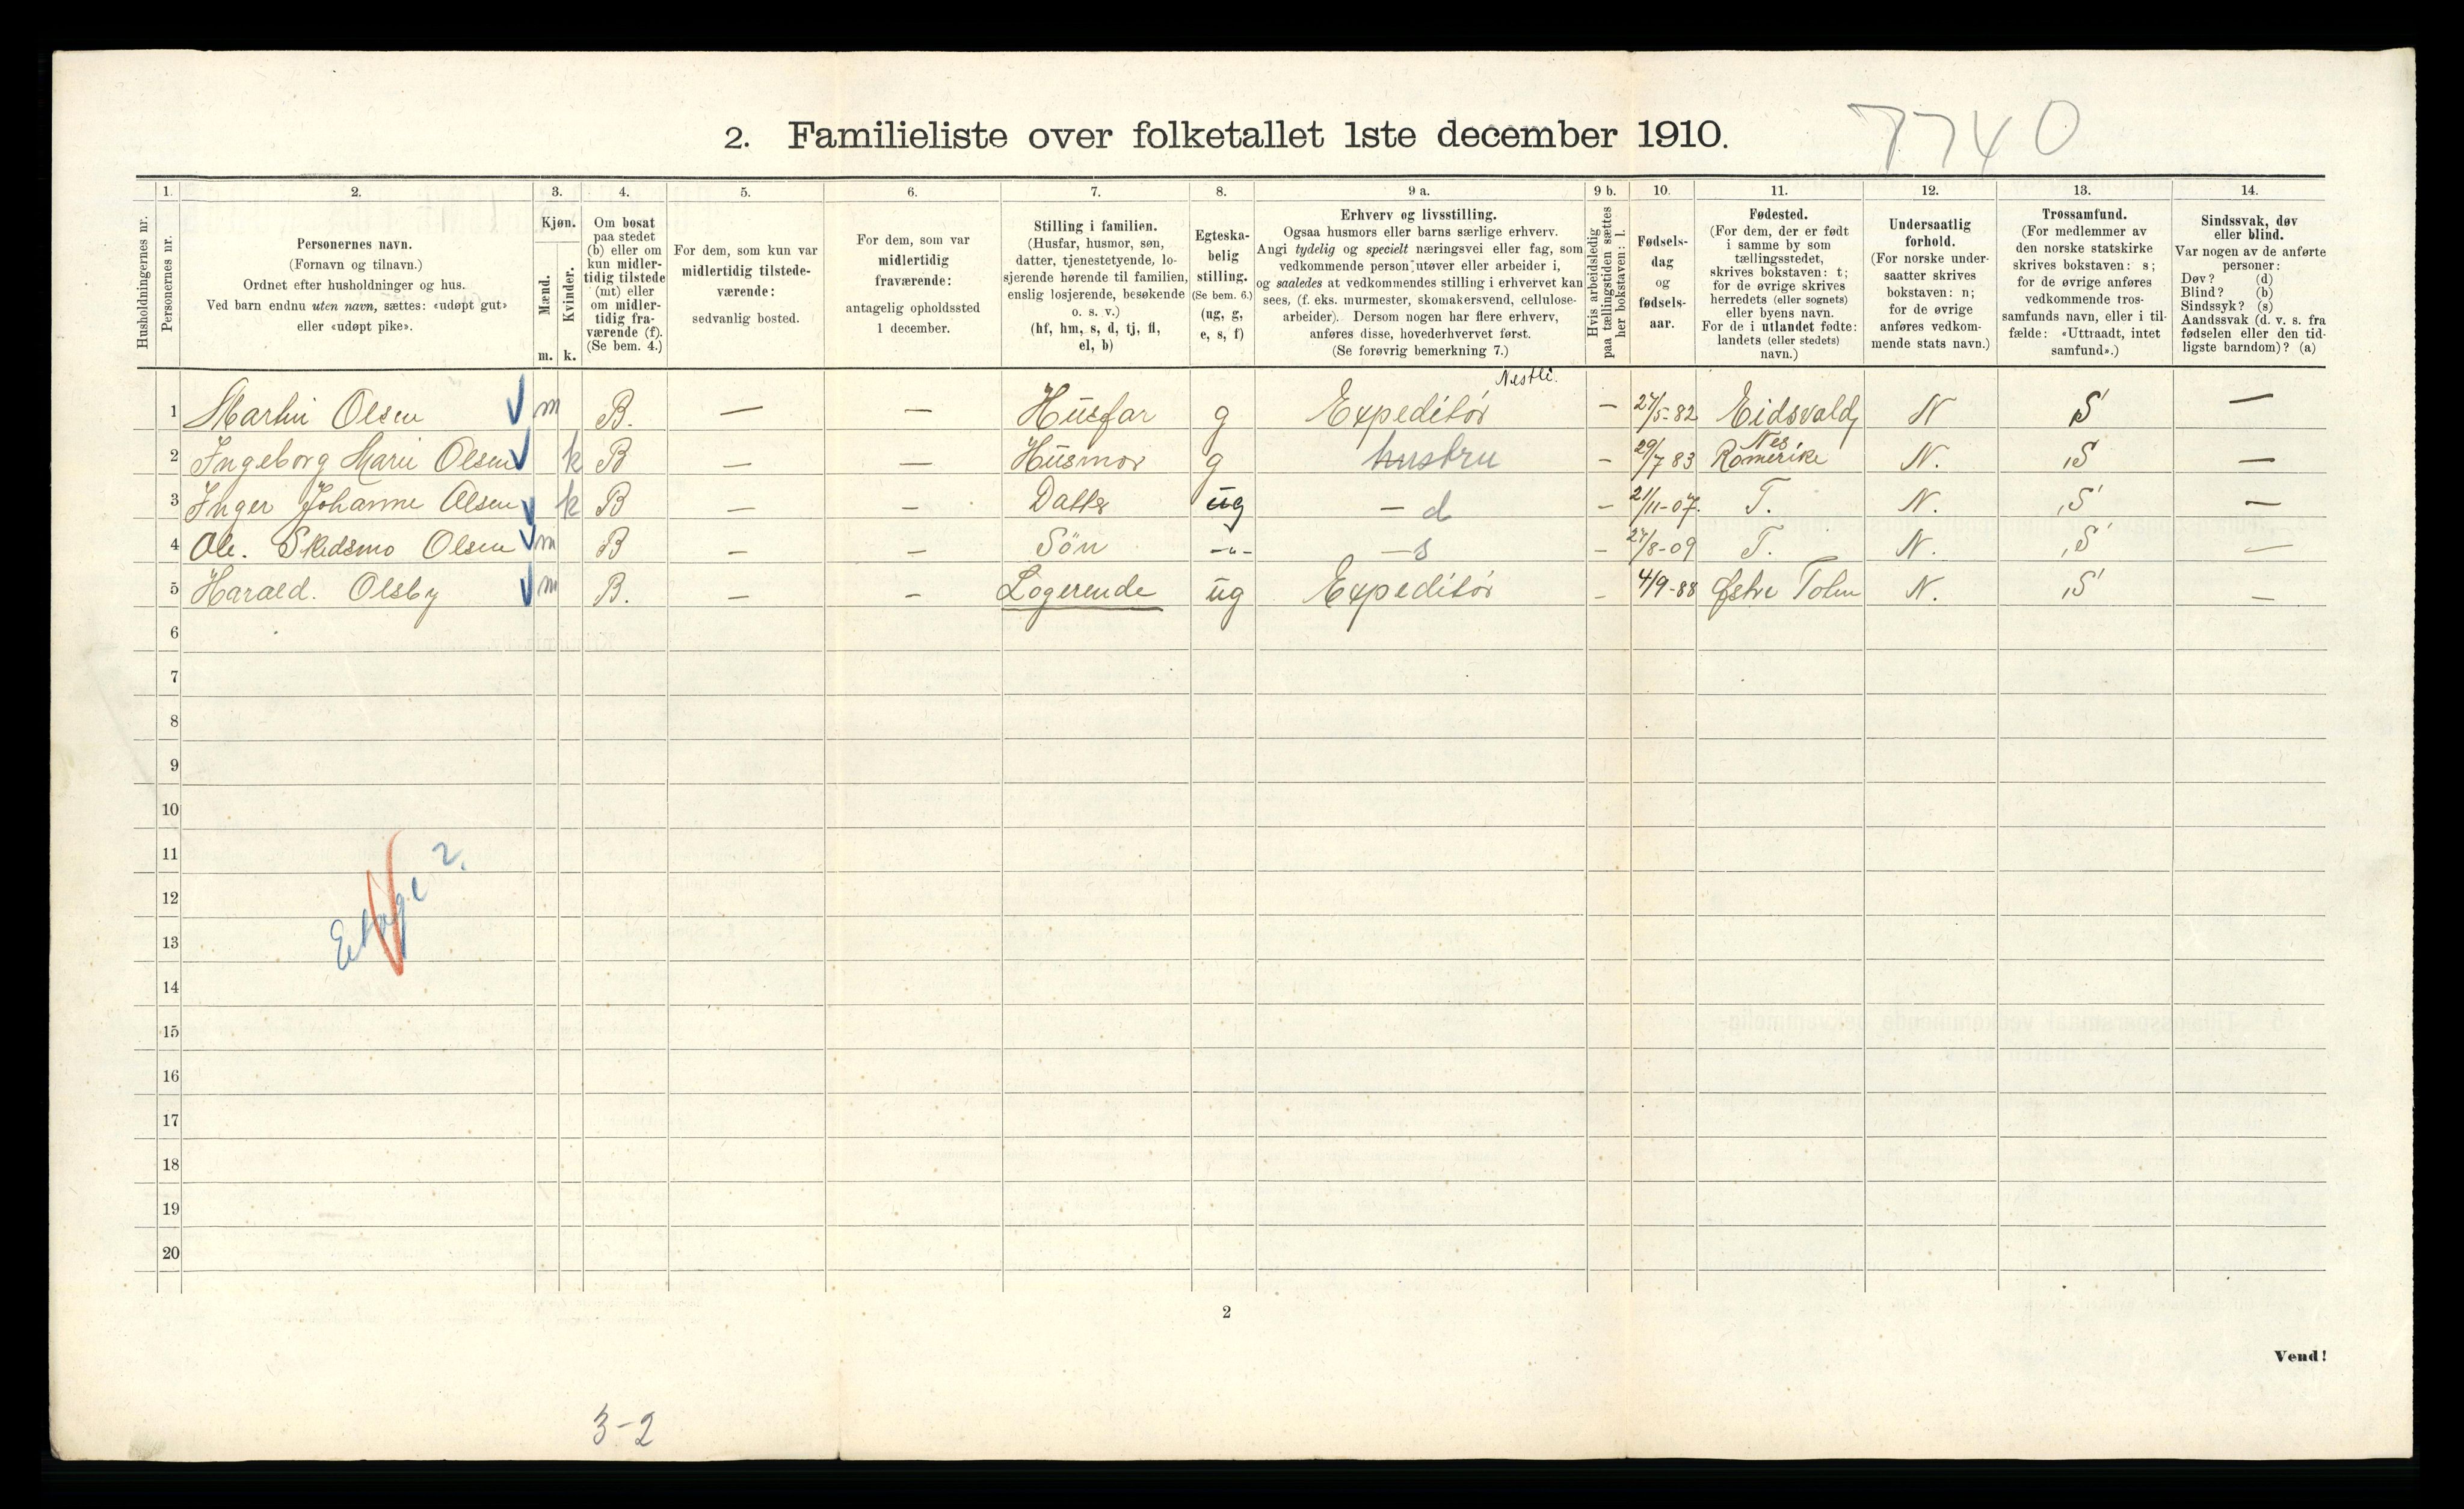 7740
2. Familieliste over folketallet 1ste december 1910.
Husholdningernes nr.
1. Personernes nr.
2. Personernes navn. (Fornavn og tilnavn.) Ordnet efter husholdninger og hus. Ved barn endnu uten navn, sættes: «udøpt gut» eller «udøpt pike».
3. Kjøn. Mænd. m. Kvinder. k.
4. Om bosat paa stedet (b) eller om kun midlertidig tilstede (mt) eller om midlertidig fraværende (f). (Se bem. 4.)
5. For dem, som kun var midlertidig tilstedeværende: sedvanlig bosted.
6. For dem, som var midlertidig fraværende: antagelig opholdssted 1 december.
7. Stilling i familien. (Husfar, husmor, søn, datter, tjenestetyende, losjerende hørende til familien, enslig losjerende, besøkende o. s. v.) (hf, hm, s, d, tj, fl, el, b)
8. Egteskabelig stilling. (Se bem. 6.) (ug, g, e, s, f)
9 a. Erhverv og livsstilling. Ogsaa husmors eller barns særlige erhverv. Angi tydelig og specielt næringsvei eller fag, som vedkommende person utøver eller arbeider i, og saaledes at vedkommendes stilling i erhvervet kan sees, (f. eks. murmester, skomakersvend, cellulosearbeider). Dersom nogen har flere erhverv, anføres disse, hovederhvervet først. (Se forøvrig bemerkning 7.)
9 b. Hvis arbeidsledig paa tællingstiden sættes her bokstaven: l.
10. Fødselsdag og fødselsaar.
11. Fødested. (For dem, der er født i samme by som tællingsstedet, skrives bokstaven: t; for de øvrige skrives herredets (eller sognets) eller byens navn. For de i utlandet fødte: landets (eller stedets) navn.)
12. Undersaatlig forhold. (For norske undersaatter skrives bokstaven: n; for de øvrige anføres vedkommende stats navn.)
13. Trossamfund. (For medlemmer av den norske statskirke skrives bokstaven: s; for de øvrige anføres vedkommende trossamfunds navn, eller i tilfælde: «Uttraadt, intet samfund».)
14. Sindssvak, døv eller blind. Var nogen av de anførte personer: Døv? (d) Blind? (b) Sindssyk? (s) Aandssvak (d. v. s. fra fødselen eller den tidligste barndom)? (a)
Nestli.
1 Martin Olsen m B. — — Husfar g Expeditör — 27/5-82 Eidsvold N S —
Nes
2 Ingeborg Marie Olsen k B — — Husmor g hustru — 29/7 83 Romerike N. S —
3 Inger Johanne Olsen k B — — Datter ug — d — 21/11-07. T. N. S —
4 Ole. Skedsmo Olsen m B — — Sön -"- — s — 27/8-09 T. N. S —
5 Harald. Olsby m B. — — Logerende ug Expeditör — 4/9-88 Østre Toten N. S —
6
7
8
9
10
11
12
13
14
15
16
17
18
19
20
Etage 2.
2
Vend!
3-2